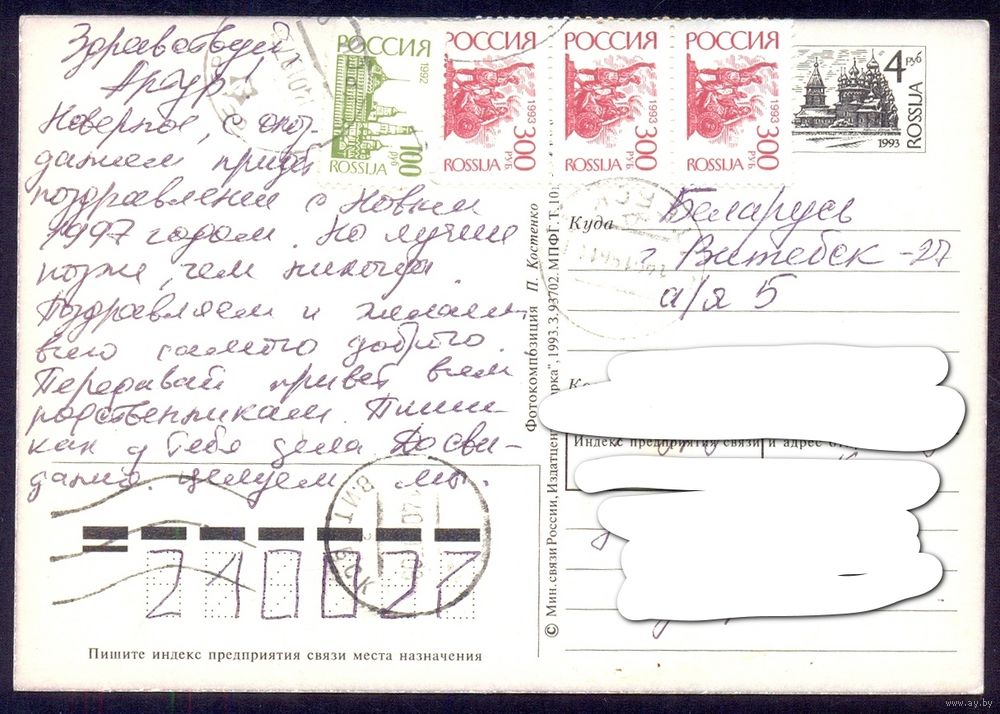 Здравствуй
Артур!
Наверное, с опоз-
данием придет
поздравление с Новым
1997 годом. Но лучше
позже, чем никогда.
Поздравляем и желаем
всего самого доброго.
Передавай привет всем
родственникам. Пиши
как у Тебя дела. До сви-
дания. Целуем мы.
РОССИЯ
1992
100 руб
ROSSIJA
РОССИЯ
1993
300 РУБ
ROSSIJA
РОССИЯ
1993
300 РУБ
ROSSIJA
РОССИЯ
1993
300 РУБ
ROSSIJA
4 РУБ
ROSSIJA
1993
Куда Беларусь
г. Витебск-27
а/я 5
Индекс предприятия связи и адрес
© Мин. связи России, Издатцент "Марка", 1993. З. 93702. МПФГ. Т. 10
Фотокомпозиция П. Костенко
210027
Пишите индекс предприятия связи места назначения
www.ay.by